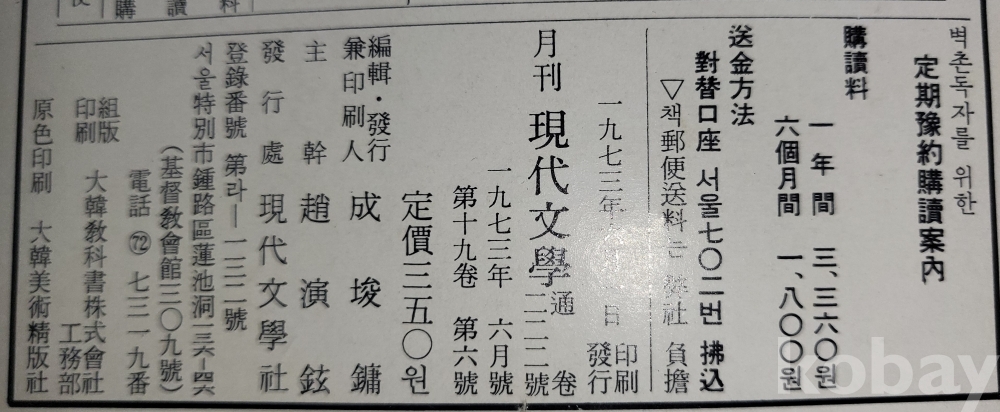 벽촌독자를 위한
定期豫約購讀案內
購讀料
一年間 三、三六〇원
六個月間 一、八〇〇원
送金方法
對替口座 서울七〇二번 拂込
▽책郵便送料는 弊社 負擔
一九七三年 日 印刷 發行
月刊 現代文學 通卷 二二二號
一九七三年 六月號
第十九卷 第六號
定價三五〇원
編輯·發行
兼印刷人 成埈鏞
主幹 趙演鉉
發行處 現代文學社
登錄番號 第라—一三二號
서울特別市鍾路區蓮池洞一三六—四六
(基督敎會館三〇九號)
電話 ㉒ 七三一九番
組版
印刷 大韓敎科書株式會社 工務部
原色印刷 大韓美術精版社
kobay